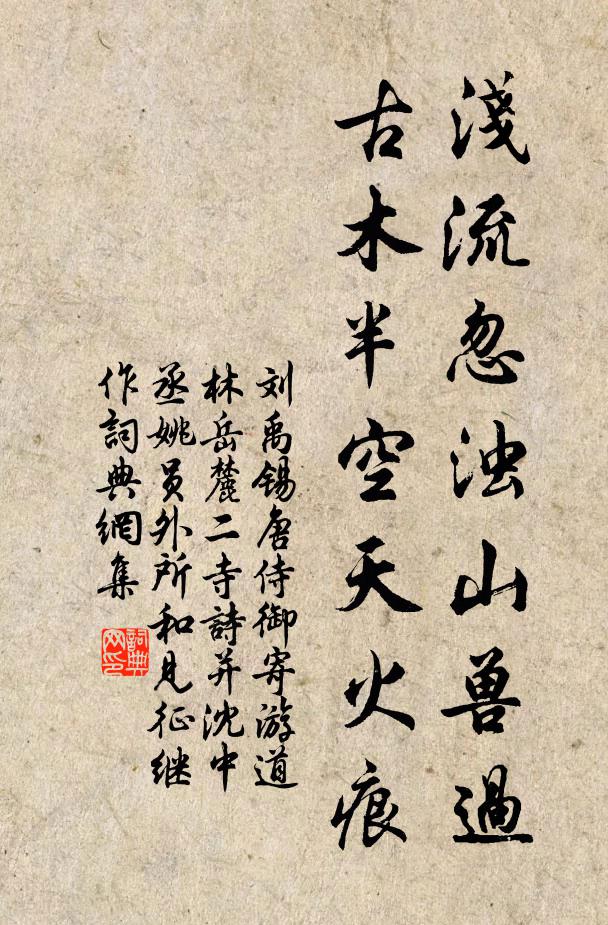 淺流忽浊山兽過
古木半空天火痕
刘禹锡唐侍御寄游道
林岳麓二寺詩并沈中
丞姚员外所和見征继
作詞典網集
詞典网印